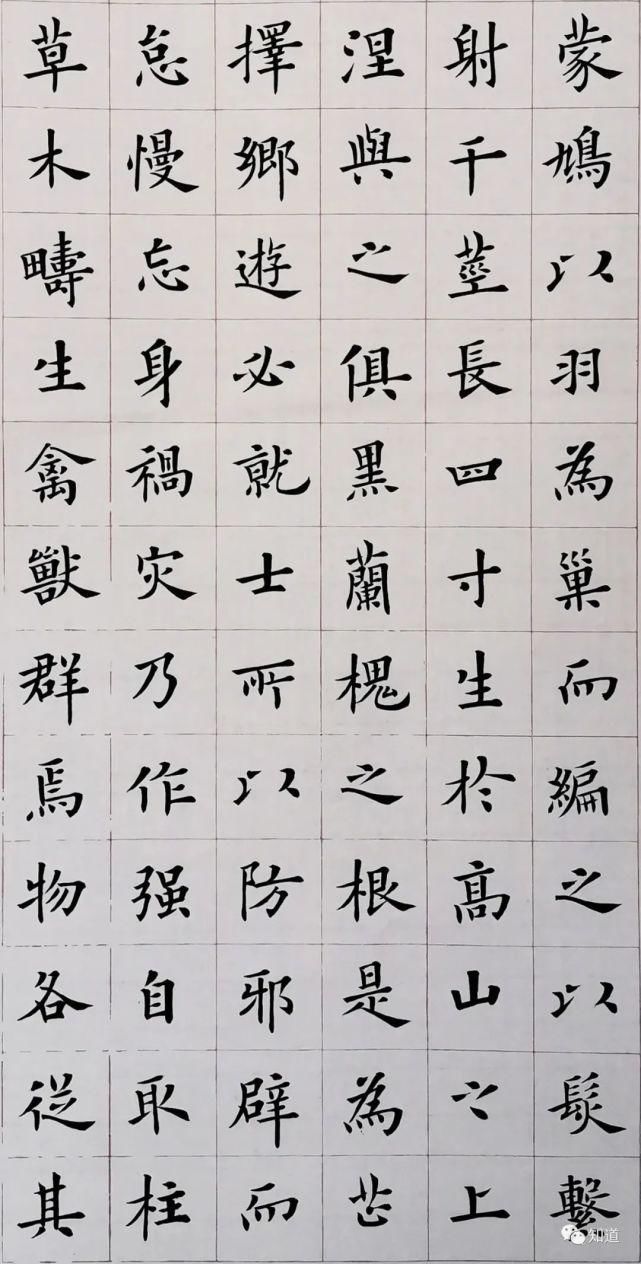 蒙鳩以羽為巢而編之以髮繫
射千莖長四寸生於高山之上
涅與之俱黑蘭槐之根是為芷
擇鄉遊必就士所以防邪辟而
怠慢忘身禍灾乃作强自取柱
草木疇生禽獸群焉物各從其
知道